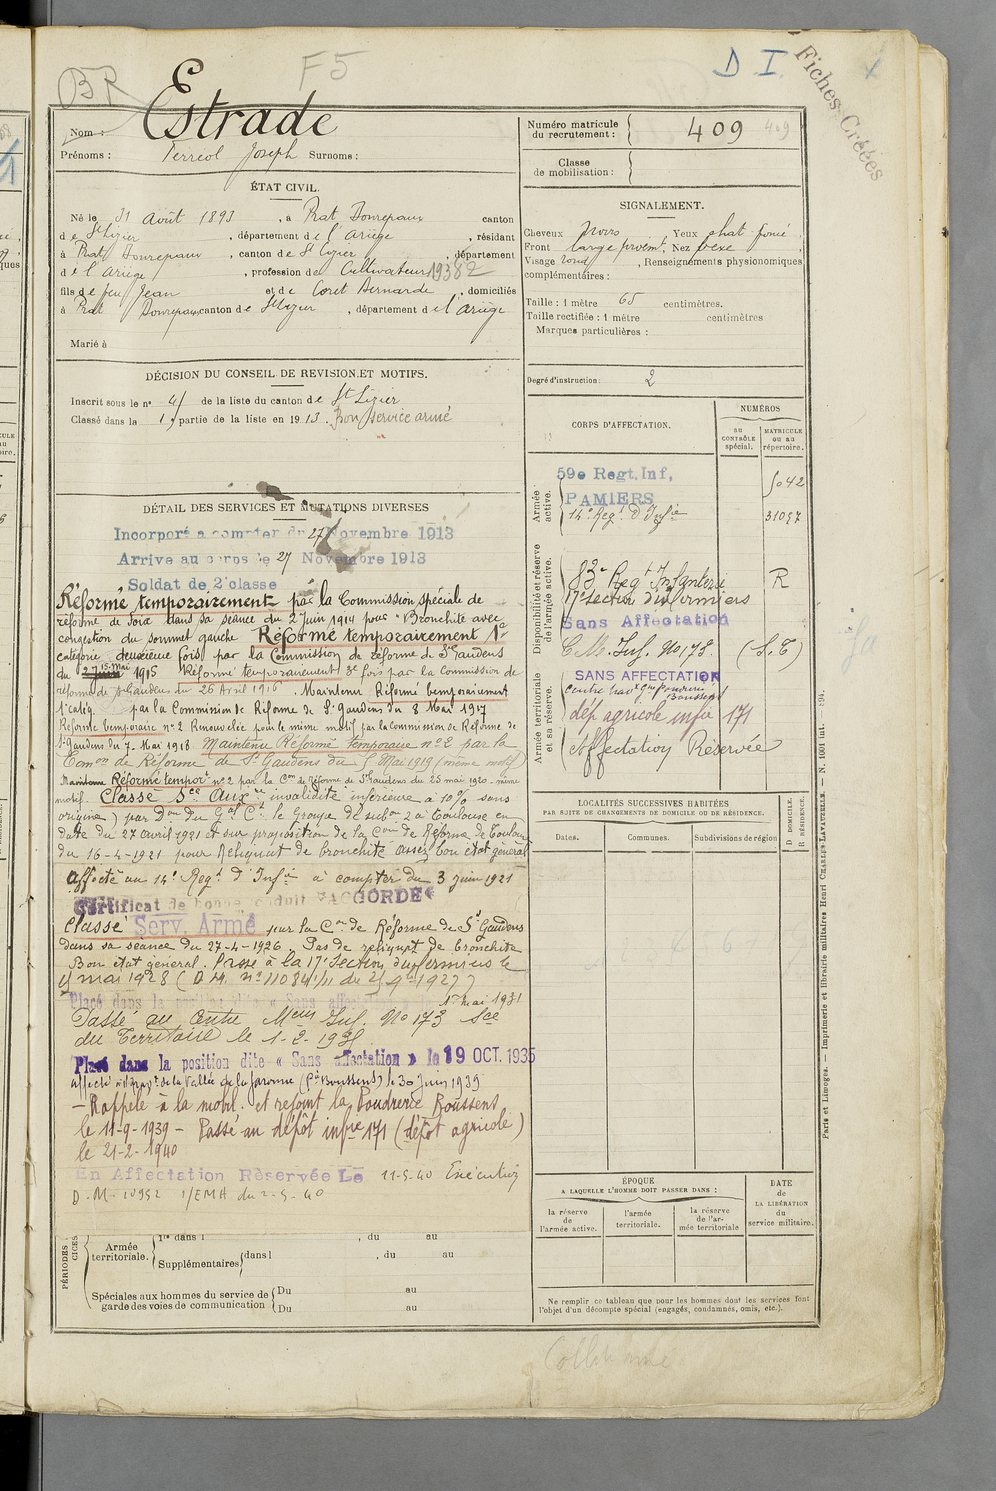 BR
F5
D I.
Fiches Créées
Nom : Estrade
Prénoms : Ferréol Joseph Surnoms :
Numéro matricule du recrutement : 409 409
Classe de mobilisation :
ÉTAT CIVIL.
Né le 31 Août 1893, à Prat Bonrepaux canton
de St Lizier, département de l'Ariège, résidant
à Prat Bonrepaux, canton de St Lizier, département
de l'Ariège, profession de Cultivateur 19382
fils de feu Jean et de Coret Bernarde, domiciliés
à Prat Bonrepaux canton de St Lizier, département de l'Ariège
Marié à
SIGNALEMENT.
Cheveux noirs Yeux chat foncé
Front large proém. Nez vexe
Visage rond, Renseignements physionomiques
complémentaires :
Taille : 1 mètre 65 centimètres.
Taille rectifiée : 1 mètre centimètres
Marques particulières :
Degré d'instruction : 2
DÉCISION DU CONSEIL DE REVISION ET MOTIFS.
Inscrit sous le n° 4 de la liste du canton de St Lizier
Classé dans la 1e partie de la liste en 1913. Bon service armé
DÉTAIL DES SERVICES ET MUTATIONS DIVERSES
Incorporé a compter du 27 Novembre 1913
Arrive au corps le 27 Novembre 1913
Soldat de 2e classe
Réformé temporairement par la Commission spéciale de
réforme de Foix dans sa séance du 2 Juin 1914 pour "Bronchite avec
congestion du sommet gauche Réformé temporairement 1e
catégorie deuxième fois par la Commission de réforme de St Gaudens
du 27 15 Mai 1915 Réformé temporairement 3e fois par la Commission de
réforme de St Gaudens du 26 Avril 1916. Maintenu Réformé temporairement
1e catég. par la Commission de Réforme de St Gaudens du 8 Mai 1917
Réforme temporaire n° 2 Renouvelée pour le même motif par la Commission de Réforme de
St Gaudens du 7 Mai 1918 Maintenu Réformé temporaire n° 2 par la
Comon de Réforme de St Gaudens du 5 Mai 1919 (même motif)
Maintenu Réformé temporé n° 2 par la Con de réforme de St Gaudens du 25 mai 1920 - même
motif. Classé Sce Auxre invalidité inférieure à 10% sans
origine) par Don du Gal Ct le Groupe de subon 2 à Toulouse en
date du 27 avril 1921 et sur proposition de la Con de Réforme de Toulouse
du 16-4-1921 pour Reliquat de bronchite assez bon état général
Affecté au 14e Regt d'Infie à compter du 3 juin 1921
Certificat de bonne conduite "ACCORDÉ"
Classé Serv. Armé par la Con de Réforme de St Gaudens
dans sa séance du 27-4-1926. Pas de reliquat de bronchite
Bon état général. Passé à la 17e Section d'infirmiers le
1er mai 1928 (D.M. n° 11084 1/11 du 2 9e 1927)
Placé dans la position dite « Sans affectation » le 1er mai 1931
Passé au Centre Meurs Inf. No 173 Sce
du Territoire le 1-2-193
Placé dans la position dite « Sans affectation » le 19 OCT. 1935
affecté de la Vallée de la Garonne (Pie Boussens) le 30 Juin 1939
- Rappelé à la mobil. et rejoint la Poudrerie Boussens
le 11-9-1939 - Passé au dépôt infie 171 (dépôt agricole)
le 21-2-1940
En Affectation Réservée Le 11-5-40 Exécution
D.M. 10952 1/EMA du 2-5-40
PÉRIODES
Armée territoriale. 1re dans l , du au
Supplémentaires dans l , du au
Spéciales aux hommes du service de garde des voies de communication Du au
Du au
CORPS D'AFFECTATION.
NUMÉROS
AU CONTRÔLE spécial.
MATRICULE ou au répertoire.
Armée active.
59e Regt. Inf, PAMIERS 5042
14e Regt d'Infie 31097
Disponibilité et réserve de l'armée active.
83e Regt Infanterie R
17e Section d'infirmiers
Sans Affectation
C.M. Inf. No 173 (S.T)
Armée territoriale et sa réserve.
SANS AFFECTATION
Boussens
dép. agricole infie 171
Affectation Réservée
LOCALITÉS SUCCESSIVES HABITÉES
PAR SUITE DE CHANGEMENTS DE DOMICILE OU DE RÉSIDENCE.
Dates.
Communes.
Subdivisions de région
D DOMICILE.
R RÉSIDENCE.
ÉPOQUE
A LAQUELLE L'HOMME DOIT PASSER DANS :
la réserve de l'armée active.
l'armée territoriale.
la réserve de l'armée territoriale
DATE de LA LIBÉRATION du service militaire.
Ne remplir ce tableau que pour les hommes dont les services font
l'objet d'un décompte spécial (engagés, condamnés, omis, etc.).
Paris et Limoges. — Imprimerie et librairie militaires Henri CHARLES-LAVAUZELLE. — N. 1001 int.